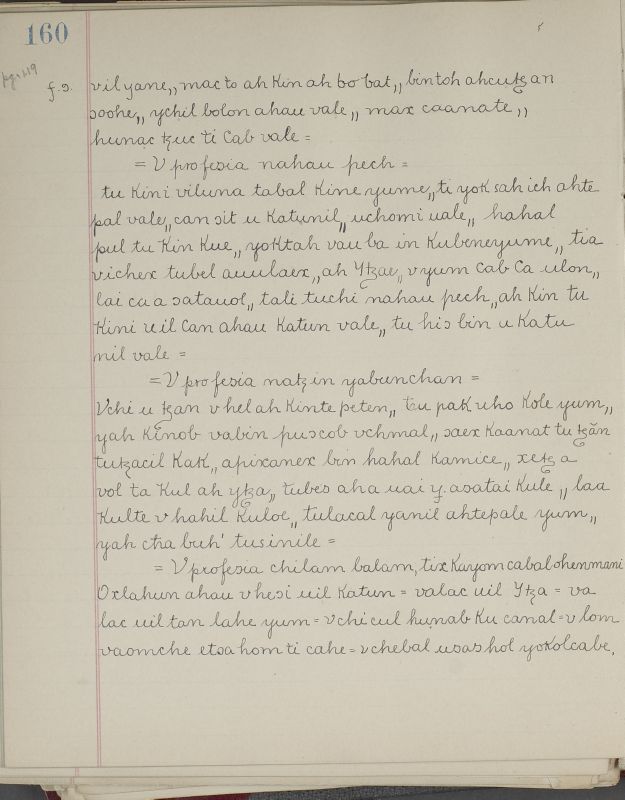 160
f. 9. vil yane,, mac to ah Kin ah bo bat,, bintoh ahcutzan
ɔoohe,, ychil bolon ahau vale,, max caanate,,
hunac tzuc ti Cab vale =
= V profeɔia nahau pech =
tu Kini viluna tabal Kine yume,, ti yok sah ich ahte
pal vale,, can ɔit u Katunil,, uchomi uale,, hahal
pul tu Kin Kue,, yoktah vau ba in Kubeneyume,, tia
vichex tubel auulaex,, ah Ytzae,, v yum cab Ca ulon,,
lai ca a ɔatauol,, tali tuchi nahau pech,, ah Kin tu
Kini uil Can ahau Katun vale,, tu hiɔ bin u Katu
nil vale =
= V profeɔia natzin yabunchan =
Vchi u tzan v hel ah Kinte peten,, tu pak uho Kole yum,,
yah Kinob vabin puscob vchmal,, ɔaex Kaanat tu tzăn
tutzacil Kak,, apixanex bin hahal Kamice,, xetz a
vol ta Kul ah ytza,, tubes aha uai y. aɔatai Kule,, laa
Kulte v hahil Kuloe,, tulacal yanil ahtepale yum,,
yah cħa buh' tusinile =
= V profeɔia chilam balam, tix Kayom cabalchenmani
Oxlahun ahau vheɔi uil Katun = valac uil Ytza = va
lac uil tan lahe yum = vchicul hunab Ku canal = v lom
vaomche etɔa hom ti cahe = vchebal uɔas hol yokolcabe,